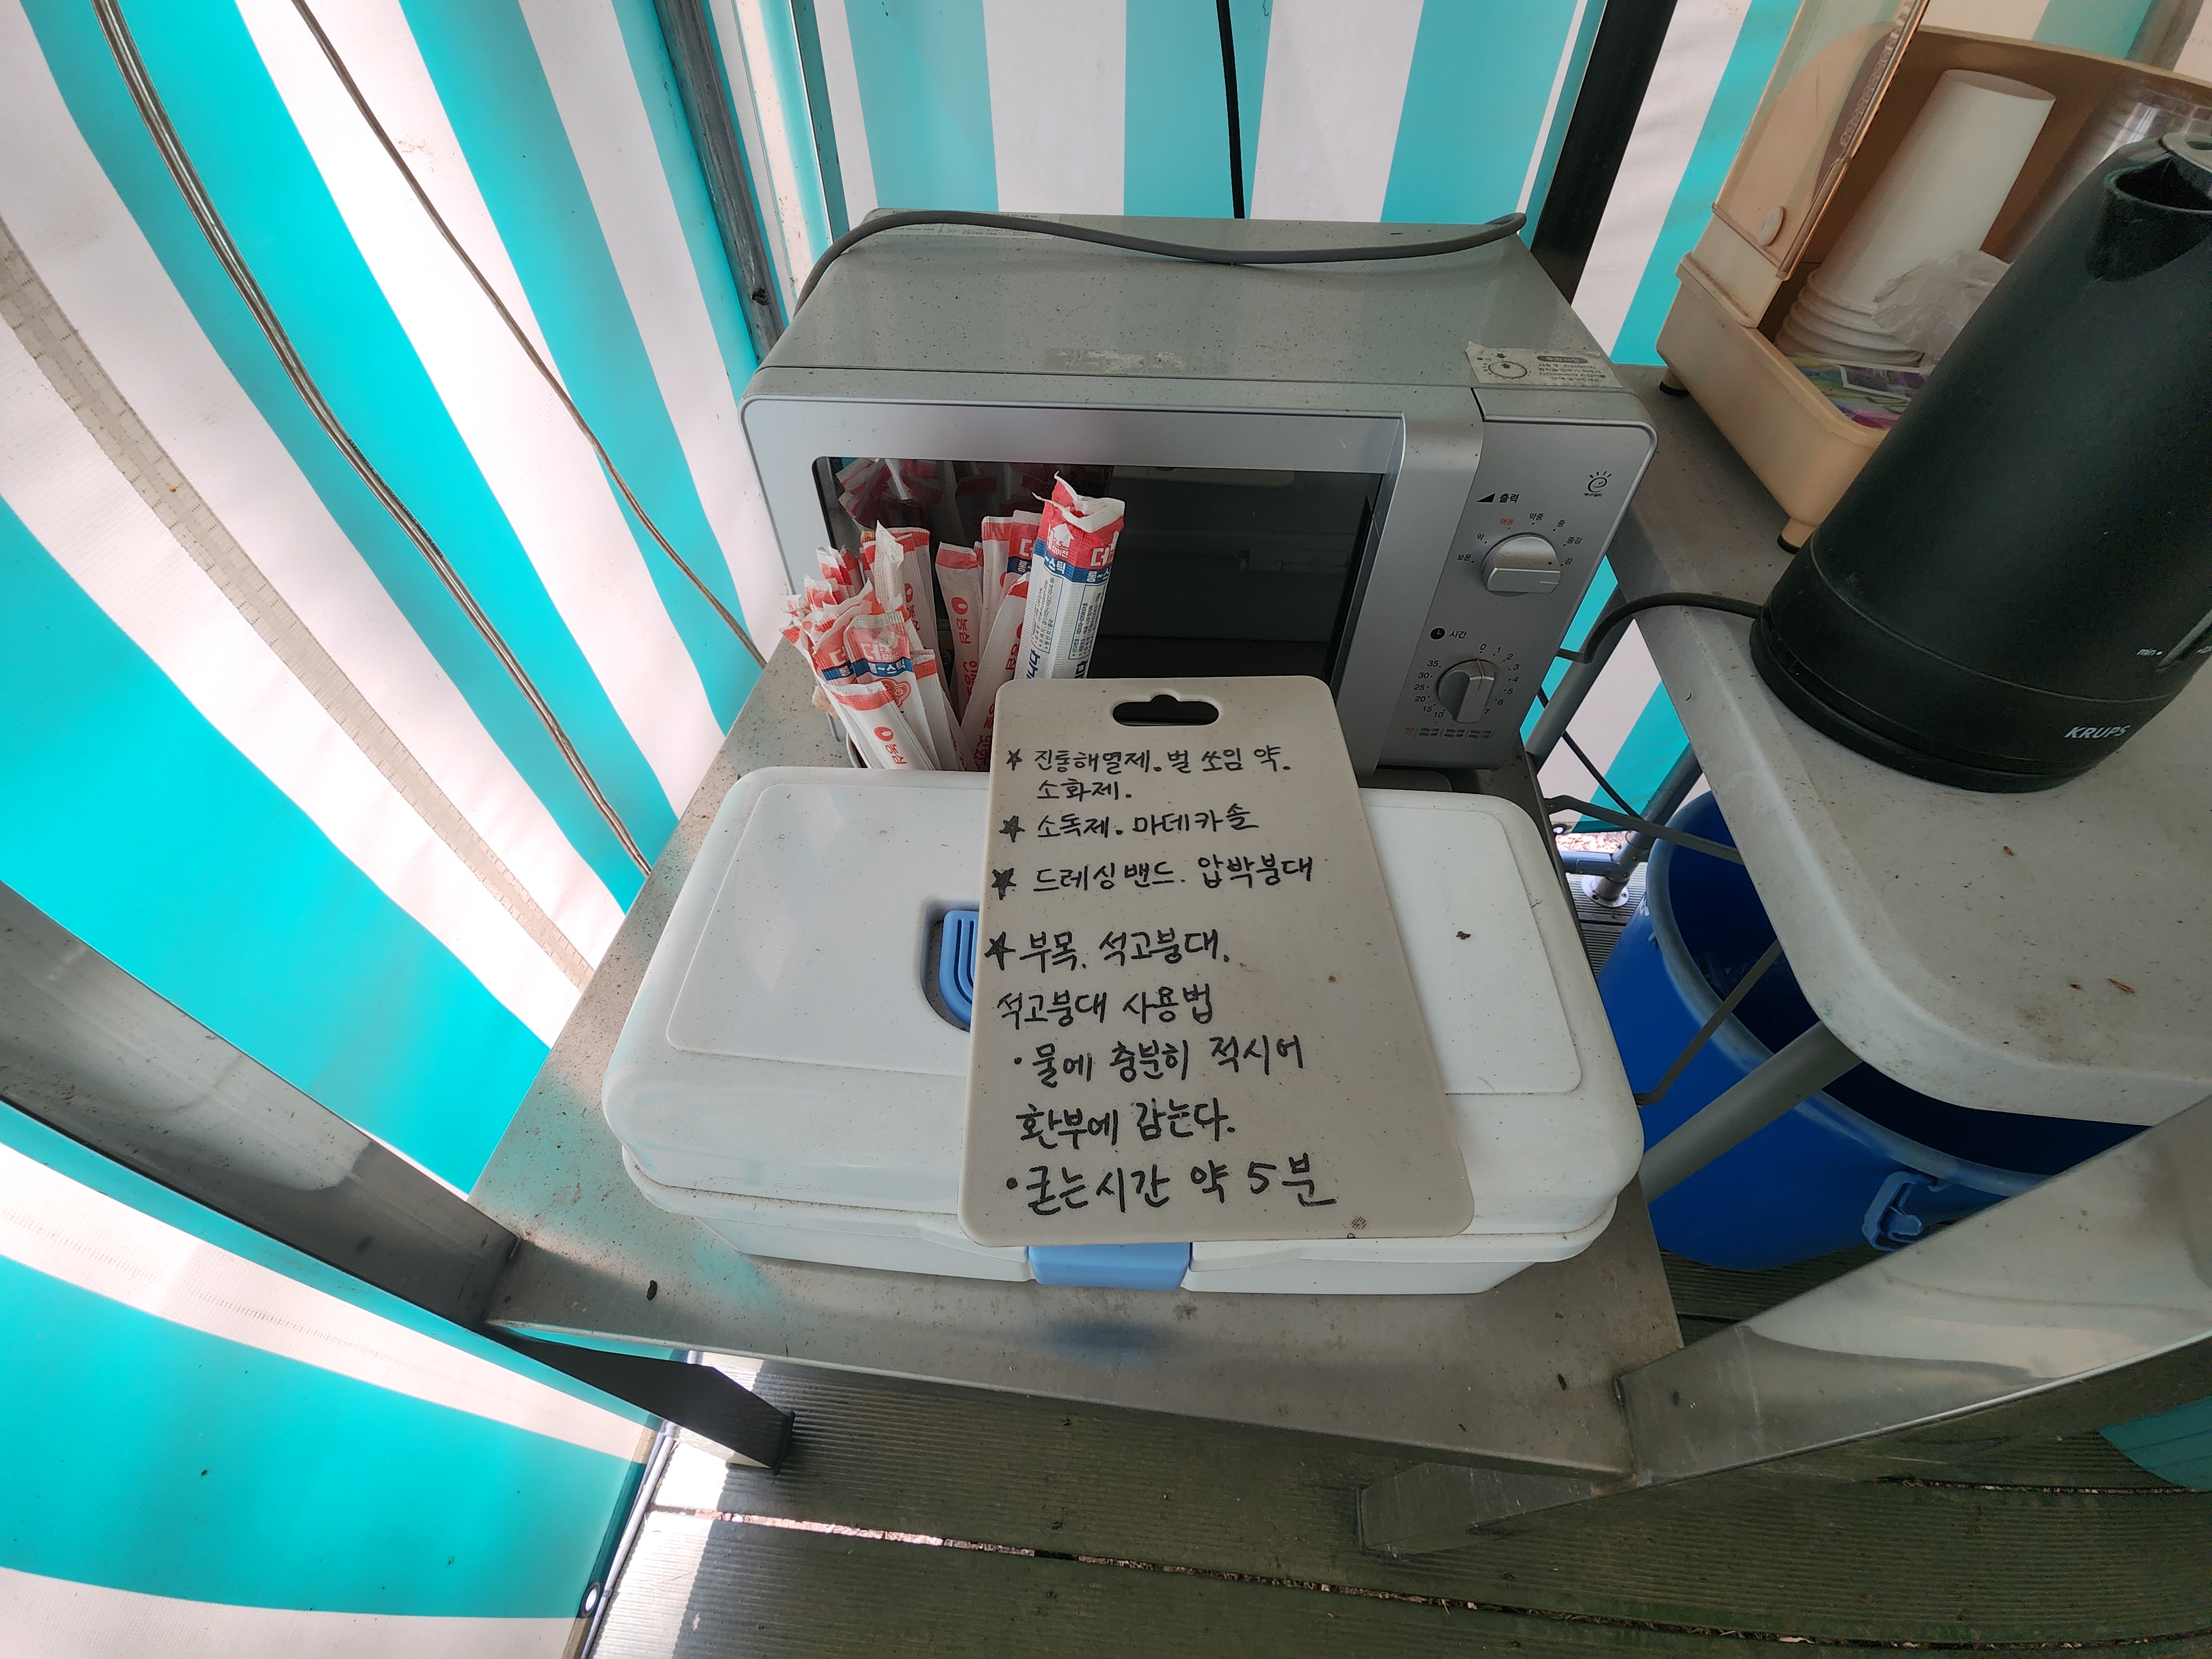 출력
해동 약중 중
약 중강
보온 강
시간
0
35 1
30 2
25 3
20 4
15 5
10 6
7
더
통~스틱
농심
농심
더
통~스틱
농심
KRUPS
min
★ 진통해열제. 벌 쏘임 약.
소화제.
★ 소독제. 마데카솔
★ 드레싱밴드. 압박붕대
★ 부목. 석고붕대.
석고붕대 사용법
· 물에 충분히 적시어
환부에 감는다.
· 굳는시간 약 5분